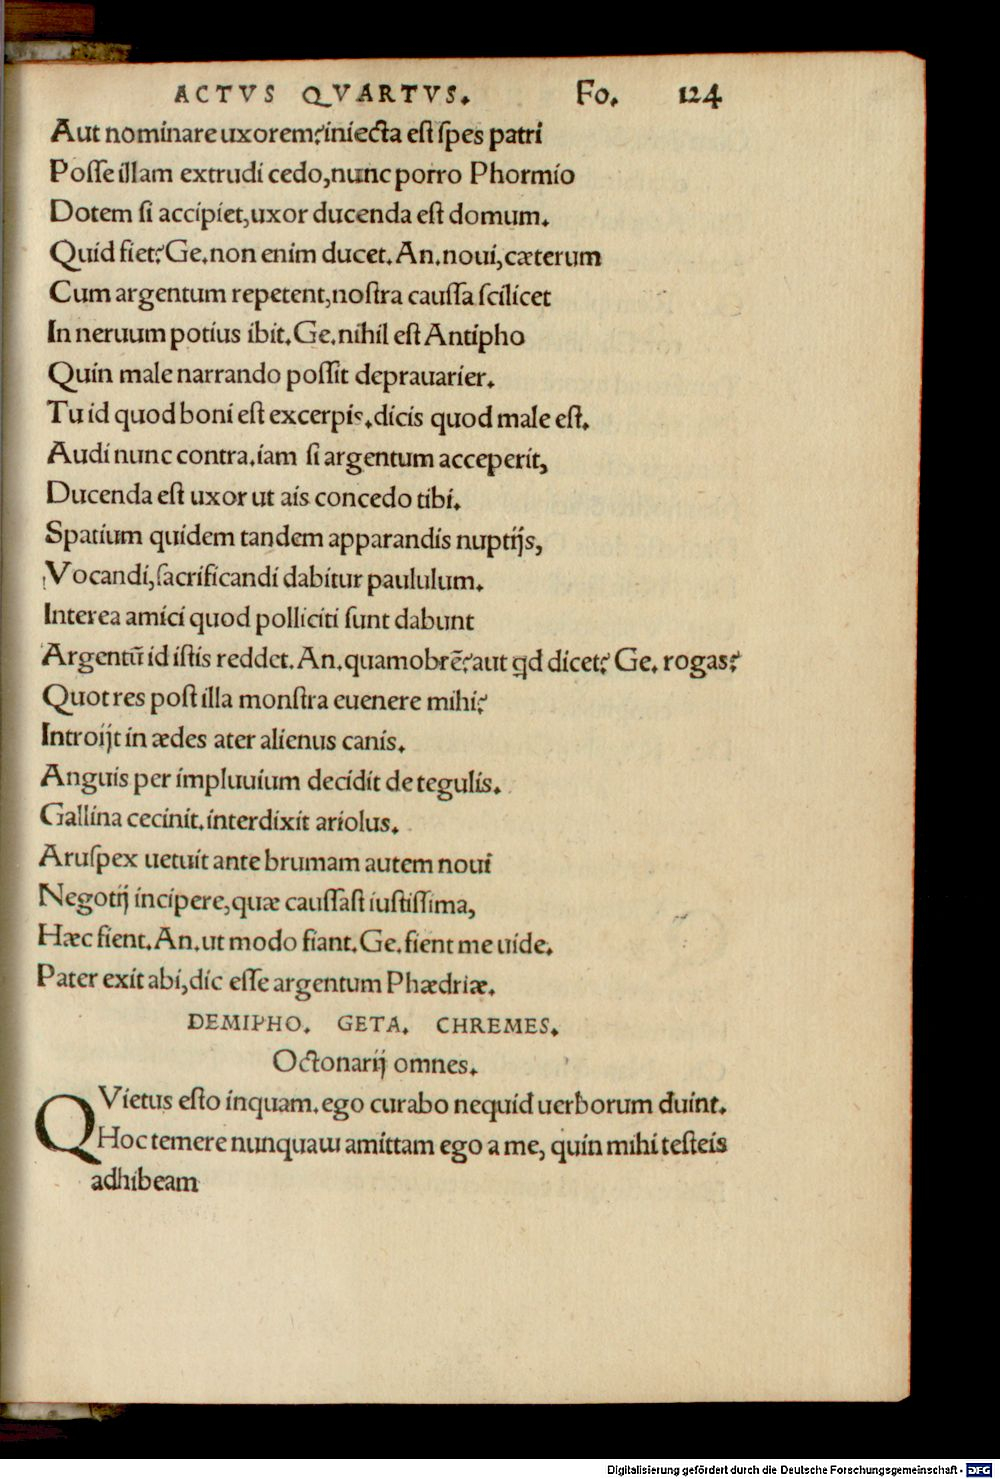 ACTVS QVARTVS. Fo. 124
Aut nominare uxorem? iniecta eſt ſpes patri
Poſſe illam extrudi cedo, nunc porro Phormio
Dotem ſi accipiet, uxor ducenda eſt domum.
Quid fiet? Ge. non enim ducet. An. noui, cæterum
Cum argentum repetent, noſtra cauſſa ſcilicet
In neruum potius ibit. Ge. nihil eſt Antipho
Quin male narrando poſſit deprauarier.
Tu id quod boni eſt excerpis. dicis quod male eſt.
Audi nunc contra. iam ſi argentum acceperit,
Ducenda eſt uxor ut ais concedo tibi.
Spatium quidem tandem apparandis nuptijs,
Vocandi, ſacrificandi dabitur paululum.
Interea amici quod polliciti ſunt dabunt
Argentũ id iſtis reddet. An. quamobrẽ? aut qd dicet? Ge. rogas?
Quot res poſt illa monſtra euenere mihi?
Introijt in ædes ater alienus canis.
Anguis per impluuium decidit de tegulis.
Gallina cecinit. interdixit ariolus.
Aruſpex uetuit ante brumam autem noui
Negotij incipere, quæ cauſſaſt iuſtiſſima,
Hæc fient. An. ut modo fiant. Ge. fient me uide.
Pater exit abi, dic eſſe argentum Phædriæ.
DEMIPHO. GETA. CHREMES.
Octonarij omnes.
QVietus eſto inquam. ego curabo nequid uerborum duint.
Hoc temere nunquam amittam ego a me, quin mihi teſteis
adhibeam
Digitalisierung gefördert durch die Deutsche Forschungsgemeinschaft - DFG